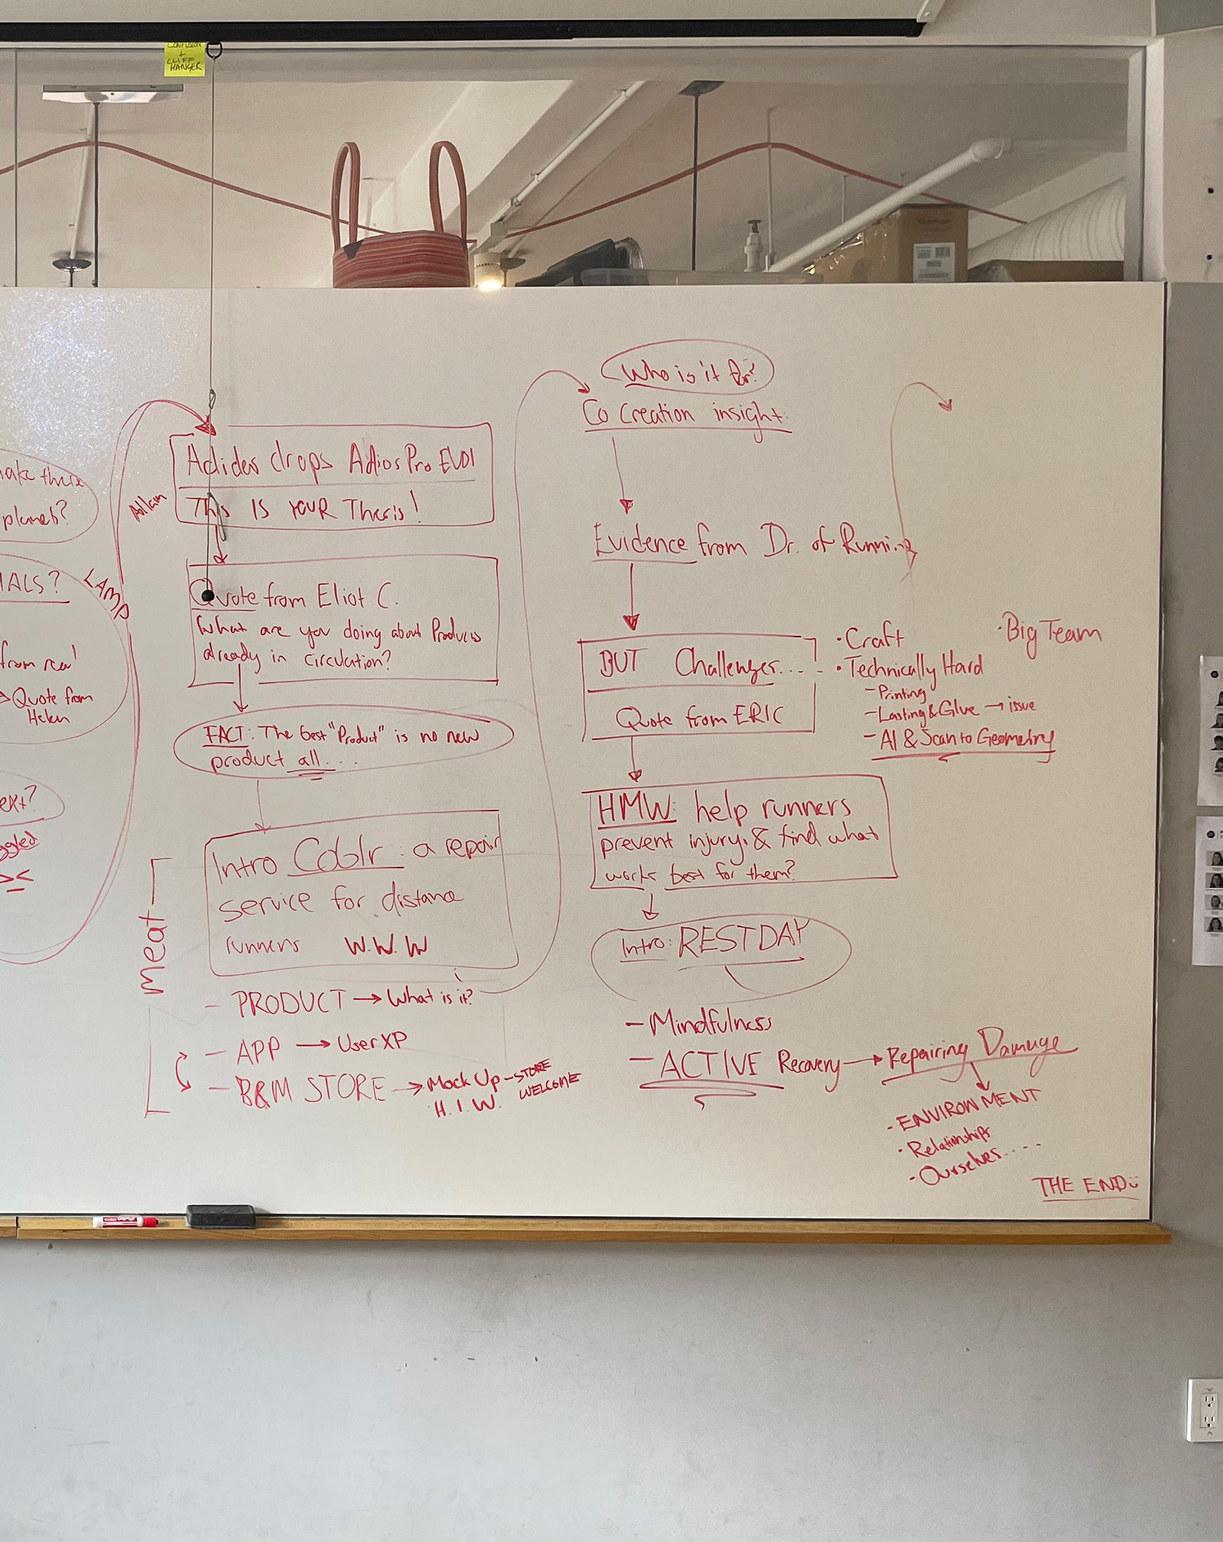 CLIFF
HANGER
make these
planet?
IALS?
from real
Quote from
Helen
ext?
LAMP
Adidas drops Adios Pro EVO1
This IS YOUR Thesis!
Quote from Eliot C.
What are you doing about Products
already in circulation?
FACT: The best "Product" is no new
product all....
meat
Intro Coblr: a repair
service for distance
runners W.W.W
- PRODUCT → What is it?
- APP → User XP
- B&M STORE → Mock Up - STORE
WELCOME
H.I.W.
Who is it for?
Co Creation insight:
Evidence from Dr. of Running
BUT Challenges....
Quote from ERIC
· Craft
· Technically Hard
- Printing
- Lasting & Glue → issue
- AI & Scan to Geometry
· Big Team
HMW: help runners
prevent injury & find what
works best for them?
Intro: REST DAY
- Mindfulness
- ACTIVE Recovery → Repairing Damage
· ENVIRONMENT
· Relationships
· Ourselves.....
THE END